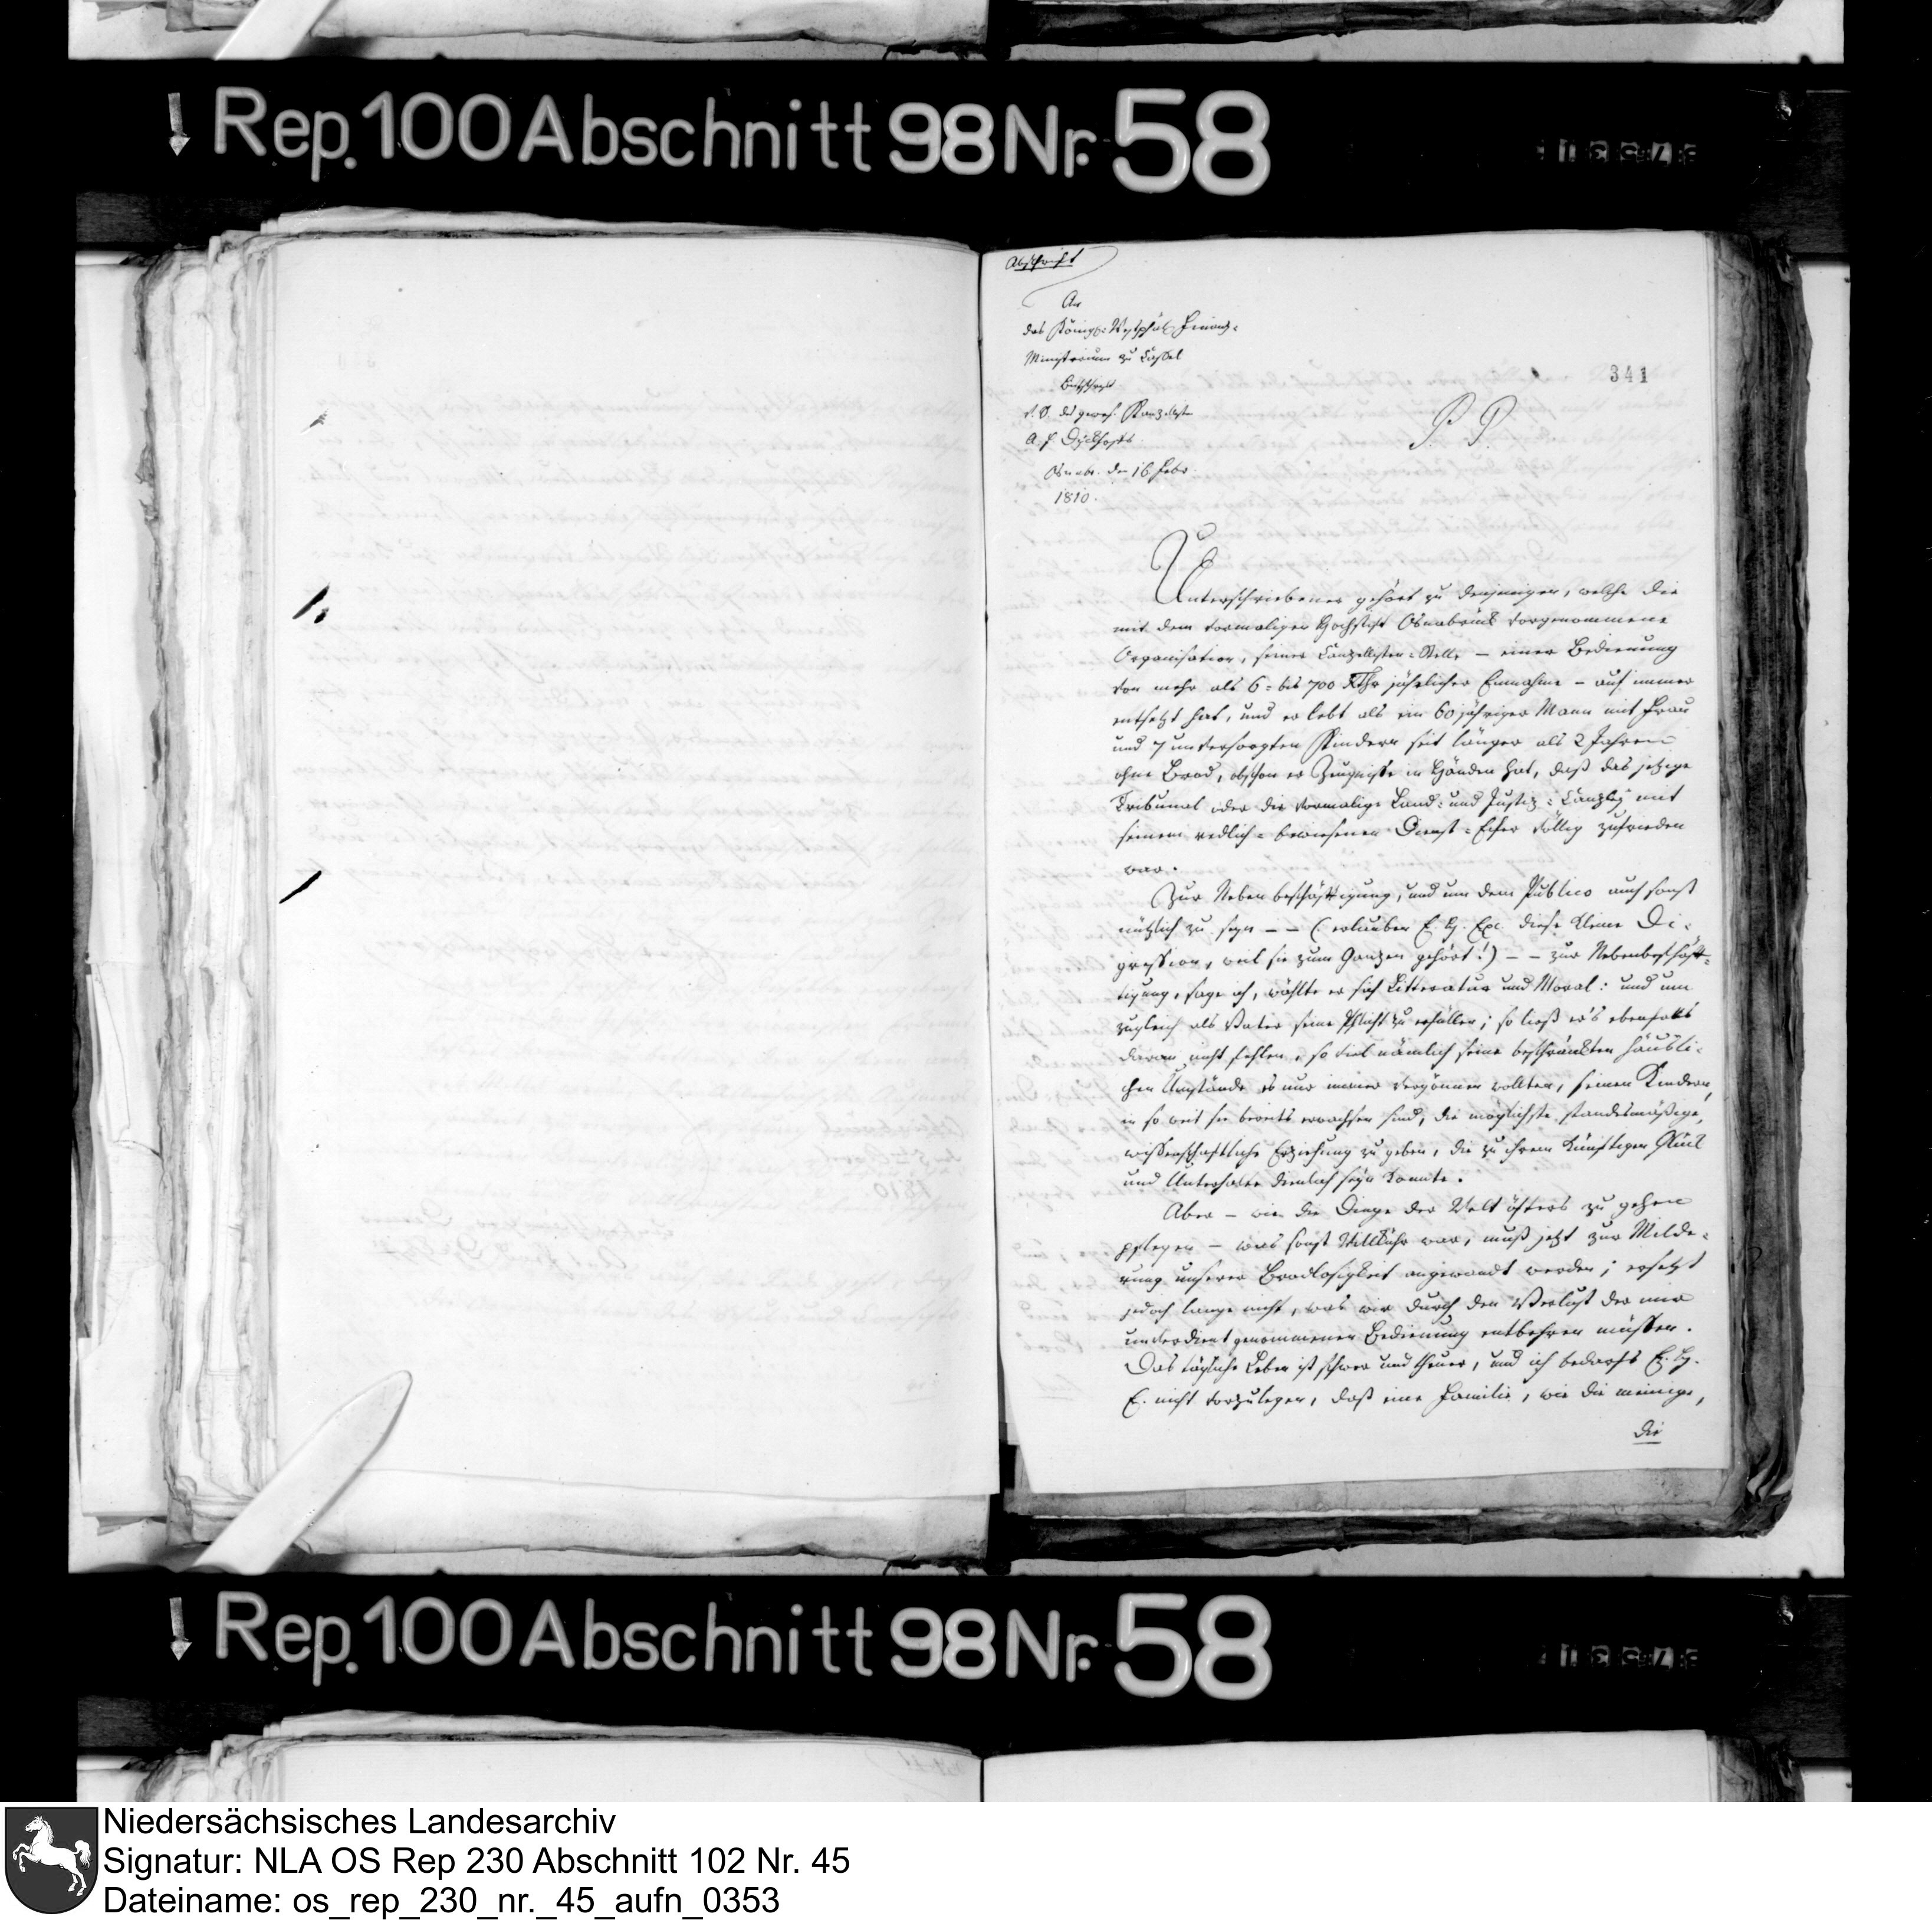 Rep. 100 Abschnitt 98 Nr. 58
Abschrift
An
das Königl: Westphäl. Finanz-
Ministerium zu Cassel
Bittschrift
v. S. des gewes. Kanzellisten
A. F. Dyckhoff
Osnabr. den 16. Febr.
1810.
341
P. P.
Unterschriebener gehört zu denjenigen, welche die
mit dem vormaligen Hochstift Osnabrück vorgenommene
Organisation, seiner Canzellisten-Stelle – einer Bedienung
von mehr als 6- bis 700 Rthr jährlicher Einnahme – auf immer
entsetzt hat, und er lebt als ein 60jähriger Mann mit Frau
und 7 unversorgten Kindern seit länger als 2 Jahren
ohne Brod, obschon er Zeugnisse in Händen hat, daß das jetzige
Tribunal oder die vormalige Land- und Justiz-Canzley mit
seinem redlich-bewiesenen Dienst-Eifer völlig zufrieden
war.
Zur Nebenbeschäftigung, und um dem Publico auch sonst
nützlich zu seyn – – (erlauben E. H. Exc. diese kleine Di-
gression, weil sie zum Ganzen gehört!) – – zur Nebenbeschäff-
tigung, sage ich, wählte er sich Litteratur und Moral: und um
zugleich als Vater seine Pflicht zu erfüllen; so ließ er's ebenfalls
daran nicht fehlen, so viel nämlich seine beschränkten häusli-
chen Umstände es nur immer vergönnen wollten, seinen Kindern,
in so weit sie bereits erwachsen sind, die möglichste standesmäßige,
wissenschaftliche Erziehung zu geben, die zu ihrem künftigen Glück
und Unterhalte dienlich seyn konnte.
Aber – wie die Dinge der Welt öfters zu gehen
pflegen – was sonst Willkühr war, muß jetzt zur Milde-
rung unserer Brodlosigkeit angewandt werden; ersetzt
jedoch lange nicht, was wir durch den Verlust der mir
unverdient genommenen Bedienung entbehren müssen.
Das tägliche Leben ist schwer und theuer, und ich bedarfs E. H.
E. nicht vorzulegen, daß eine Familie, wie die meinige,
die
Rep. 100 Abschnitt 98 Nr. 58
Niedersächsisches Landesarchiv
Signatur: NLA OS Rep 230 Abschnitt 102 Nr. 45
Dateiname: os_rep_230_nr._45_aufn_0353